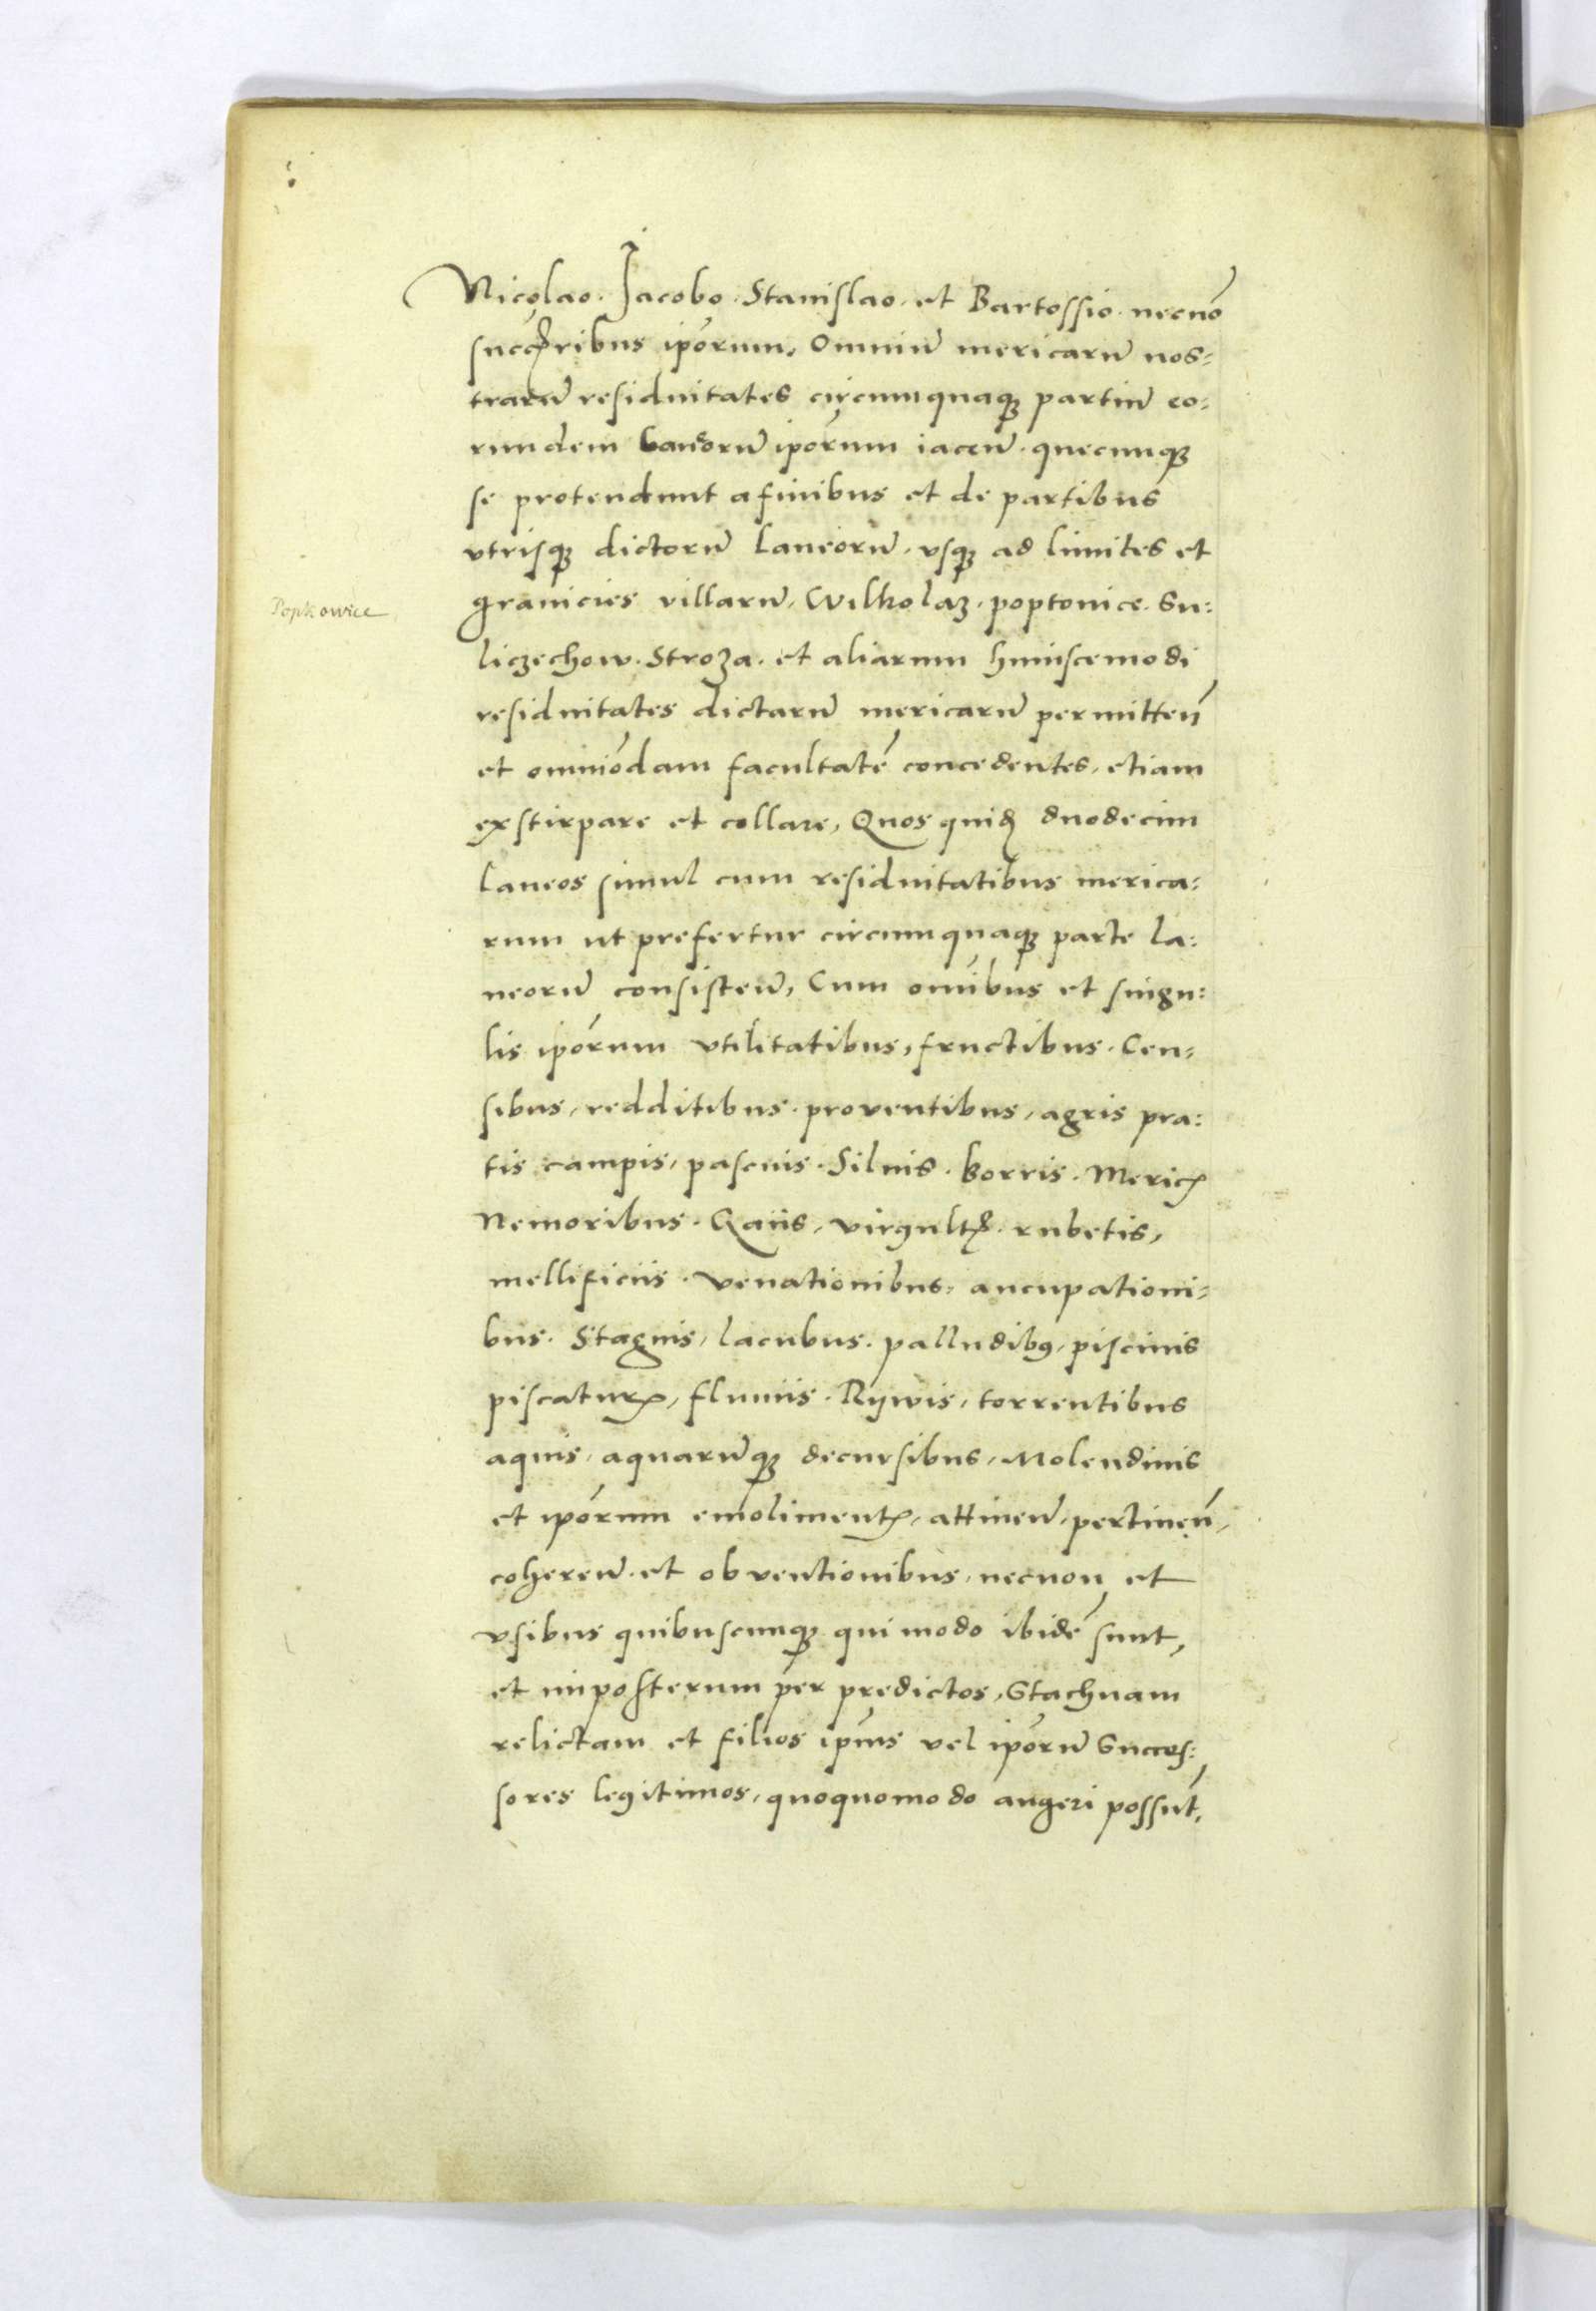 Nicolao. Jacobo. Stanislao. et Bartossio. necnō
succ̄ribus ip̄orum. Omniū mericarū nos-
trarū residuitates circumquaqꝫ partiū eo-
rundem laneorū ip̄orum iaceñ. quecumqꝫ
se protendunt a finibus et de partibus
vtrisqꝫ dictorū laneorū. vsqꝫ ad limites et
Popkowice
granicies villarū. Wilkolaz. poptonice. Su-
liczechow. Stroza. et aliarum huiuscemodi
residuitates dictarū mericarū permitteñ
et omniōdam facultatē concedentes. etiam
exstirpare et collare, Quos quid̄ duodecim
laneos simul cum residuitatibus merica-
rum ut prefertur circumquaqꝫ parte la-
neorū consisteñ, Cum om̄ibus et singu-
lis ip̄orum vtilitatibus, fructibus. Cen-
sibus, redditibus. proventibus, agris pra-
tis campis, pascuis. Siluis. borris. Mericꝭ
Nemoribus. Gaiis, virgultꝭ. rubetis,
mellificiis. venationibus, aucupationi-
bus. Stagnis, lacubus. palludibꝰ, piscinis
piscaturꝭ, fluuiis. Rywis, torrentibus
aquis, aquarūqꝫ decursibus, Molendinis
et ip̄orum emolimentꝭ, attineñ, pertineñ,
cohereñ. et obventionibus, necnon et
vsibus quibuscumqꝫ qui modo ibidē sunt,
et imposterum per predictos, Stachnam
relictam et filios ip̄ius vel ip̄orū Succes-
sores legitimos, quoquomodo augeri possūt,